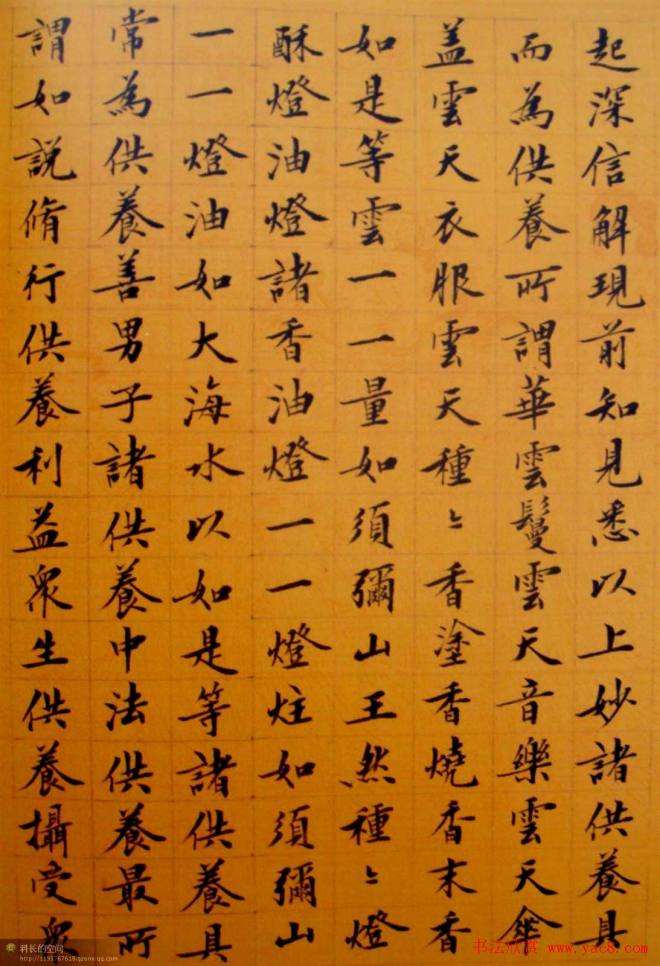 起深信解現前知見悉以上妙諸供養具
而為供養所謂華雲鬘雲天音樂雲天傘
蓋雲天衣服雲天種〻香塗香燒香末香
如是等雲一一量如須彌山王然種〻燈
酥燈油燈諸香油燈一一燈炷如須彌山
一一燈油如大海水以如是等諸供養具
常為供養善男子諸供養中法供養最所
謂如說脩行供養利益衆生供養攝受衆
科长的空间
http://1193767618.qzone.qq.com
书法欣赏 www.yac8.com